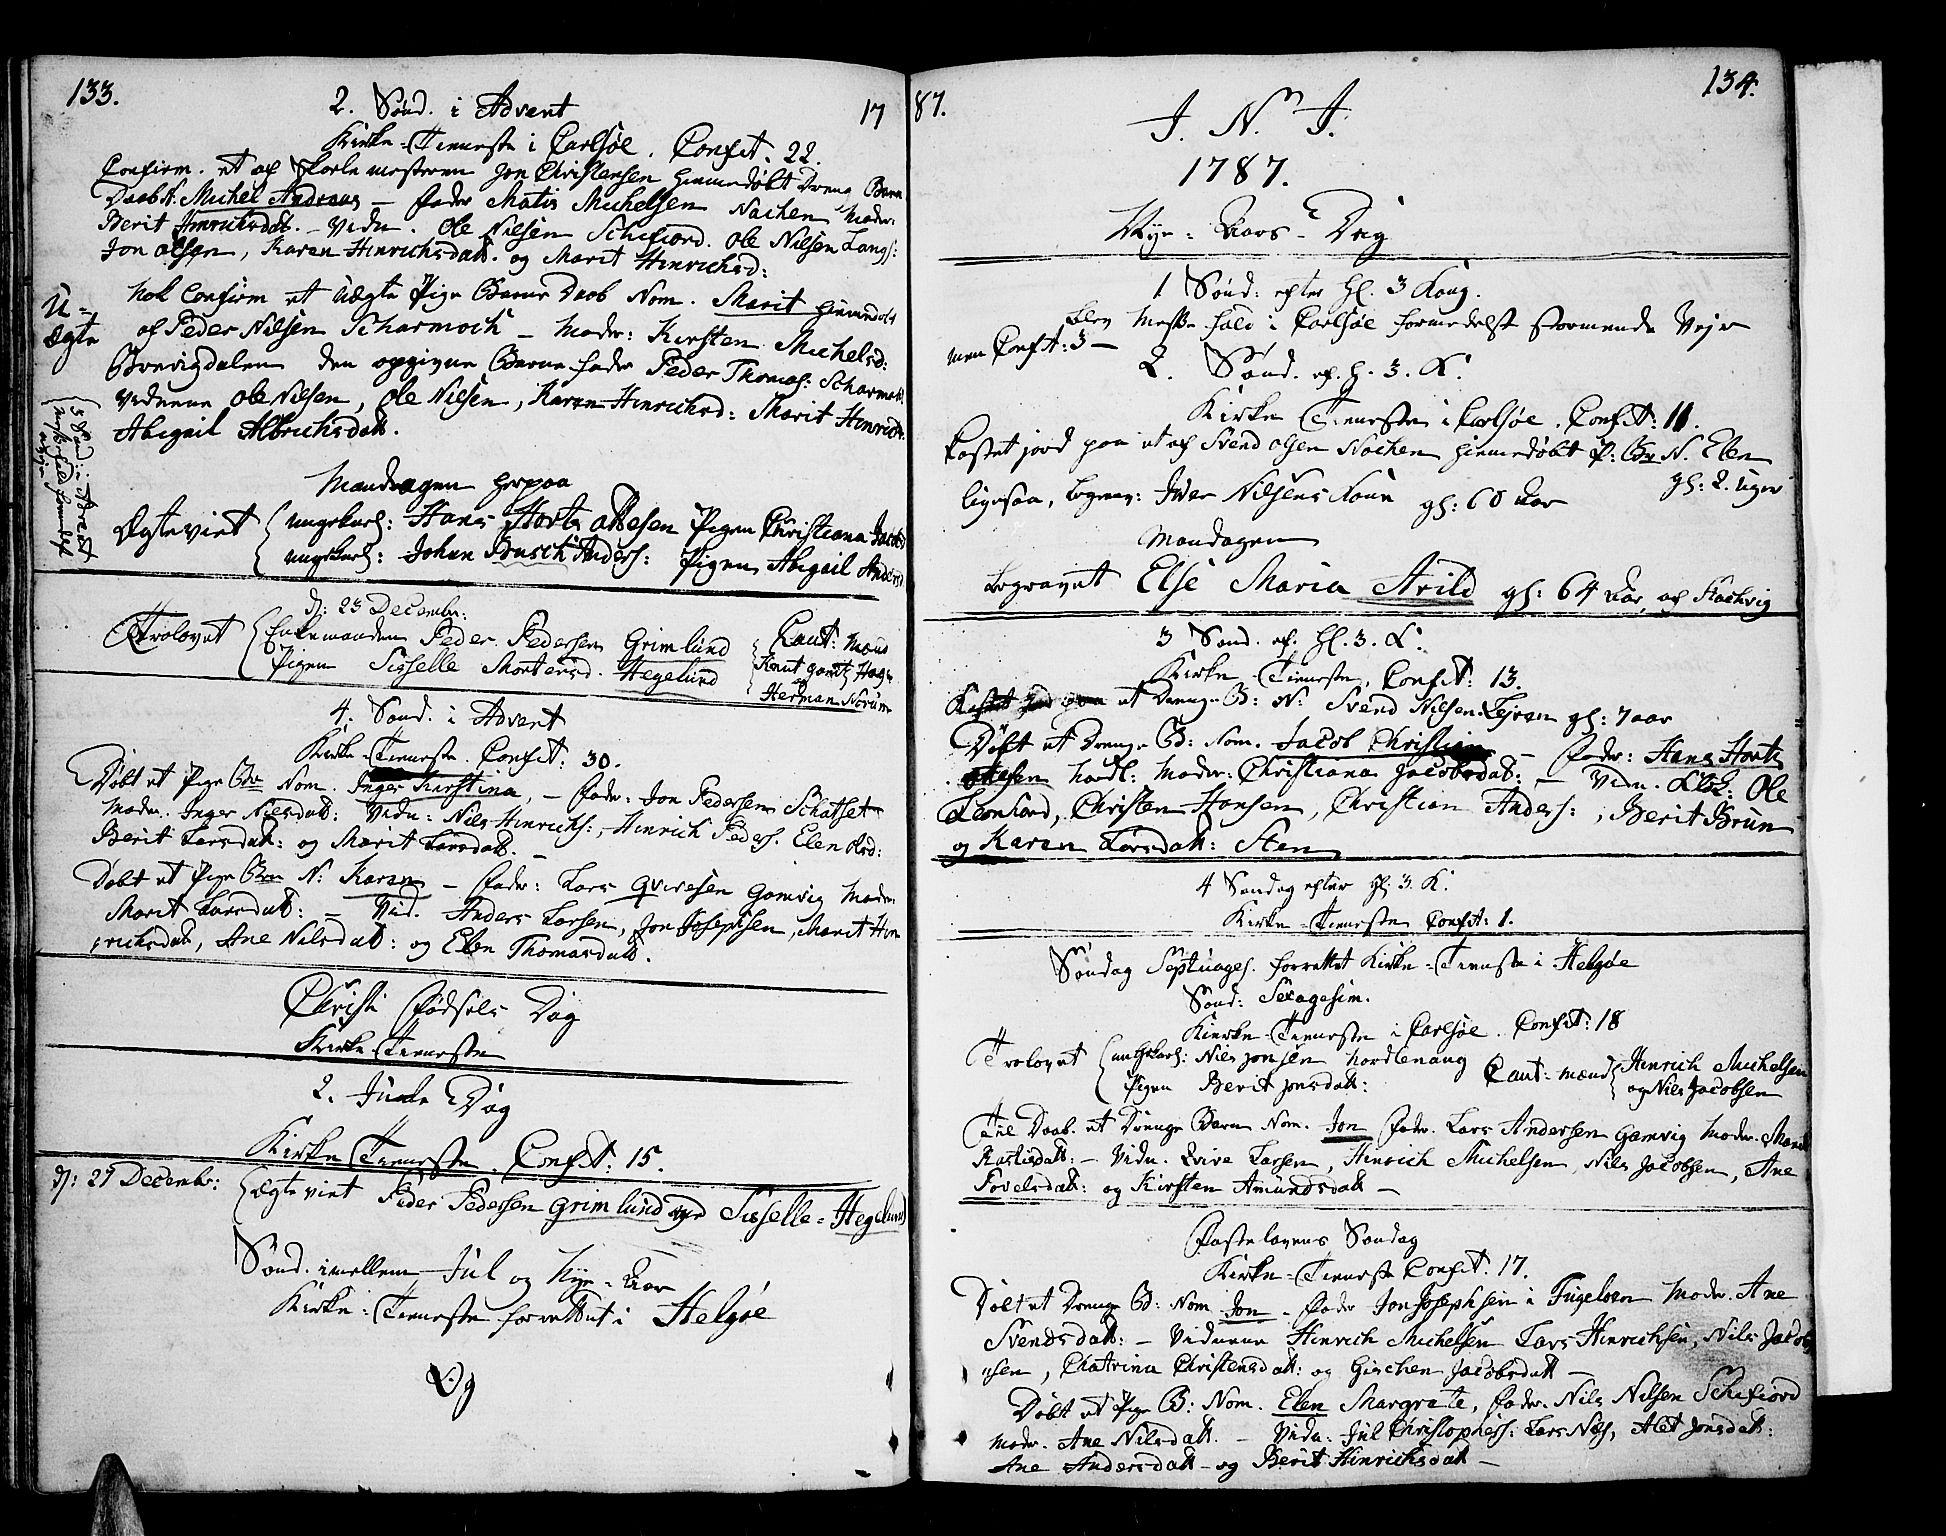 133.
2. Sønd. i Advent
17
Kirke-Tieneste i Carlsøe. Confit: 22.
Confirm. et af Skolemesteren Jon Christensen hiemedøbt Drenge Barn
Daab N. Michel Andreas — Fader Matis Michelsen Nachen Moder.
Berit Hinrichsdatt. — Vidn. Ole Nilsen Schifiord. Ole Nilsen Langs:
Jon Olsen, Karen Hinrichsdatt. og Marit Hinrichsd:
Nok Confirm et Uægte Pige Barns Daab Nom. Marit hiemdøbt
U-
ægte
af Peder Nilsen Scharmoch — Moder: Kirsten Michelsd:
Brevigdalen den opgivne Barne Fader Peder Thomas: Scharmoch.
Vidnerne Ole Nilsen, Ole Nilsen, Karen Hinrichsd: Marit Hinrichs.
Abigail Albrichtsdatt.
3 Sønd: i Advent
Messe fald formedelst
Vejr
Mandagen herpaa
Ægteviet
ungekarl: Hans Hortz Ottesen Pigen Christiana Jacobsd
ungekarl: Johan Busch Anders: Pigen Abigail Andersd
d: 23 Decembr:
Trolovet
Enkemanden Peder Pedersen Grimlund
Pigen Sisselle Mortensd. Hegelund
Caut: Mænd
Knut
Herman Norum
4. Sønd. i Advent
Kirke-Tieneste. Confit: 30.
Døbt et Pige Bn Nom. Inger Kirstina, — Fader: Jon Pedersen Schatset
Moder. Inger Nielsdatt: Vidn: Nils Hinrichs:, Hinrich Peders. Elen Olsd:
Berit Larsdatt: og Marit Larsdatt.
Døbt et Pige Bn N: Karen — Fader: Lars Qvivesen Gamvig Moder.
Marit Larsdatt: — Vid. Anders Larsen, Jon Josephsen, Marit Hin
richsdatt, Ane Nilsdatt: og Elen Thomasdatt.
Christi Fødsels Dag
Kirke-Tieneste
2. Jule Dag
Kirke Tieneste. Confit: 15.
d: 27 Decembr:
Ægteviet Peder Pedersen Grimlund og Sisselle Hegelund
Sønd. imellem Jul og Nye-Aar
Kirke-Tieneste forrettet i Helgøe
Og
87.
134.
J. N. J.
1787.
Nye-Aars-Dag
1 Sønd: efter Hl. 3 Kong.
blev Messe fald i Carlsøe formedelst stormende Vejr
men Confit: 3 —
2. Sønd. ef. H. 3. K.
Kirke Tieneste i Carlsøe. Confit: 11.
Kastet jord paa et af Svend Olsen Nachen hiemedøbt P: Bn N. Elen
gl: 2. Uger
ligesaa, begrav: Iver Nilsens Kone gl: 60 Aar
Mandagen
begravet Else Maria Arild gl: 64 Aar, af
3 Sønd. ef. Hl. 3. K.
Kirke-Tieneste, Confit: 13.
Kastet Jord paa et Drenge B: N: Svend Nilsen Lejren gl: 7 aar
Døbt et Drenge B: Nom. Jacob Christian — Fader: Hans Hortz
Ottesen Nordl: Moder: Christiana Jacobsdatt: — Vidn. Klok: Ole
Leonhord, Christen Hansen, Christian Anders:, Berit Brun
og Karen Larsdatt: Sten
4 Søndag efter Hl. 3. K.
Kirke-Tieneste Confit: 1.
Søndag Septuages. forrettet Kirke-Tieneste i Helgøe
Sønd: Sexagesim.
Kierke-Tieneste i Carlsøe. Confit: 18
Trolovet
ungekarl: Nils Jonsen Nordlenang
Pigen Berit Jonsdatt:
Caut: mænd
Hinrich Michelsen
og Nils Jacobsen
Til Daab. et Drenge Barn Nom. Jon Fader. Lars Andersen Gamvig Moder. Maria
Rastisdatt: — Vidn. Qvive Larsen, Hinrich Michelsen, Nils Jacobsen, Ane
Povelsdatt: og Kirsten Amundsdatt —
Fastelavens Søndag
Kirke-Tieneste Confit. 17.
Døbt et Drenge B: Nom. Jon — Fader Jon Josephsen i Fugeløen Moder. Ane
Svendsdatt: — Vidnerne Hinrich Michelsen Lars Hinrichsen, Nils Jacob
sen, Chatrina Christensdatt: og Giertien Jacobsdatt —
Døbt et Pige B: Nom. Elen Margrete, Fader. Nils Nilsen Schifiord
Moder. Ane Nilsdatt. — Vidn. Jul Christophers: Lars Niels, Alet Jonsdatt:
Ane Andersdatt — og Berit Hinrichsdatt —